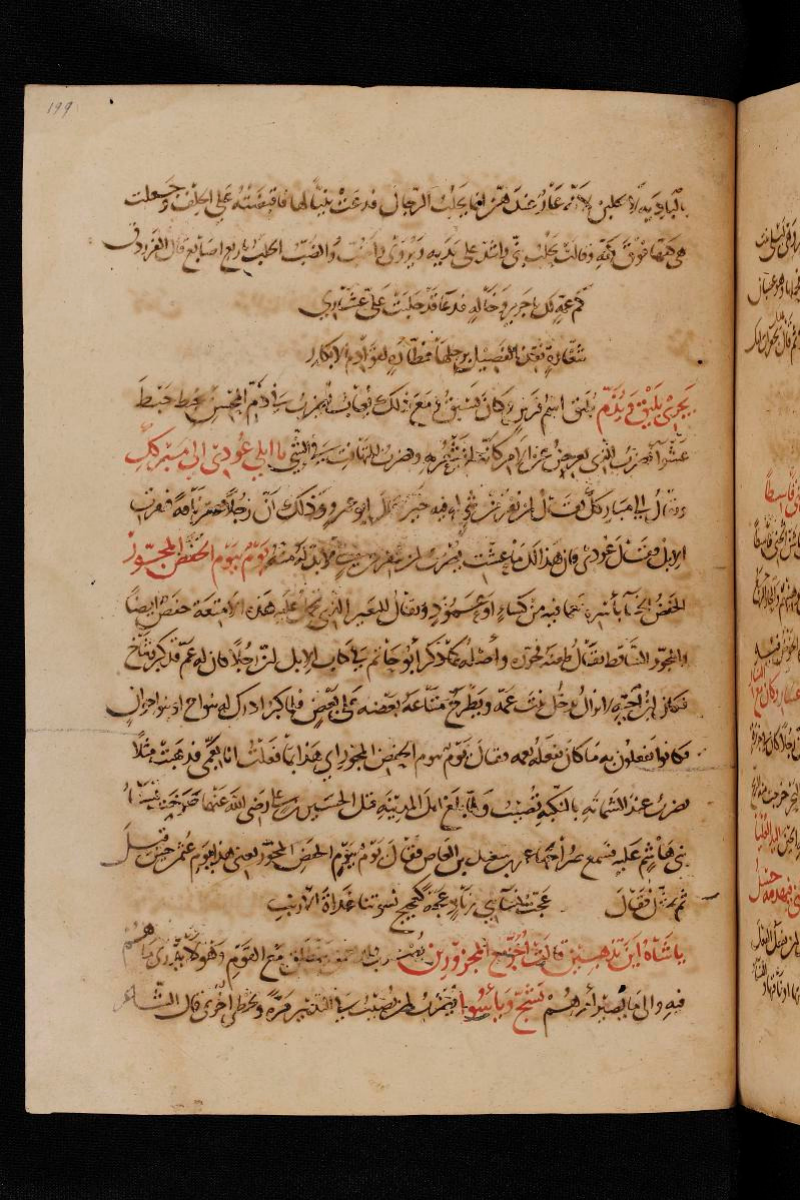 ١٩٩
بالبادية لا يحلبن لانه عار عندهم انما يحلب الرجال فدعت بنيا لها فاقبضته على الخلف وجعلت
هي كفها فوق كفه وقالت يحلب بني واشد على يديه ويروى واضب والضب الحلب باربع اصابع قال الفرزدق
كم عمة لك يا جرير وخالة فدعاء قد حلبت علي عشاري
شغارة تقذ الفصيل برجلها فطارة لقوادم الابكار
يجري بليق ويذم بليق اسم فرس كان يسبق ومع ذلك يعاب يضرب في ذم المحسن يخبط خبط
عشواء يضرب للذي يعرض عن الامر كانه لم يشعر به ويضرب للمتهافت في الشي يا ابلي عودي الى مبركك
ويقال الى مباركك يقال لمن نفر من شي له فيه خير قال ابو عمرو وذلك ان رجلا عقر ناقة فنفرت
الابل فقال عودي فان هذا لك ما عشت يضرب لمن ينفر من شي لا بد له منه يوم بيوم الحفض المجور
الحفض الخباء باسره بما فيه من كساء او عمود ويقال للبعير الذي يحمل عليه هذه الامتعة حفض ايضا
والمجور الساقط يقال طعنه فجوره واصله كما ذكر ابو حاتم في كتاب الابل ان رجلا كان له عم قد كبر وشاخ
فكان ابن اخيه لا يزال يدخل بيت عمه ويطرح متاعه بعضه على بعض فلما كبر ادرك له بنو اخ او بنو اخوات
فكانوا يفعلون به ما كان يفعله بعمه فقال يوم بيوم الحفض المجور اي هذا بما فعلت انا بعمي فذهبت مثلا
يضرب عند الشماتة بالنكبة تصيب ولما بلغ اهل المدينة قتل الحسين بن علي رضي الله عنهما صرخت نساء
بني هاشم عليه فسمع صراخها عمرو بن سعيد بن العاص فقال يوم بيوم الحفض المجور يعني هذا بيوم عثمن حين قتل
ثم تمثل فقال عجت نساء بني زياد عجة كعجيج نسوتنا غداة الارنب
يا شاة اين تذهبين قالت اجز مع المجزوزين يضرب للاحمق ينطلق مع القوم وهو لا يدري ما هم
فيه والى ما يصير امرهم يشج وياسو يضرب لمن يصيب في التدبير مرة ويخطي اخرى قال الشاعر